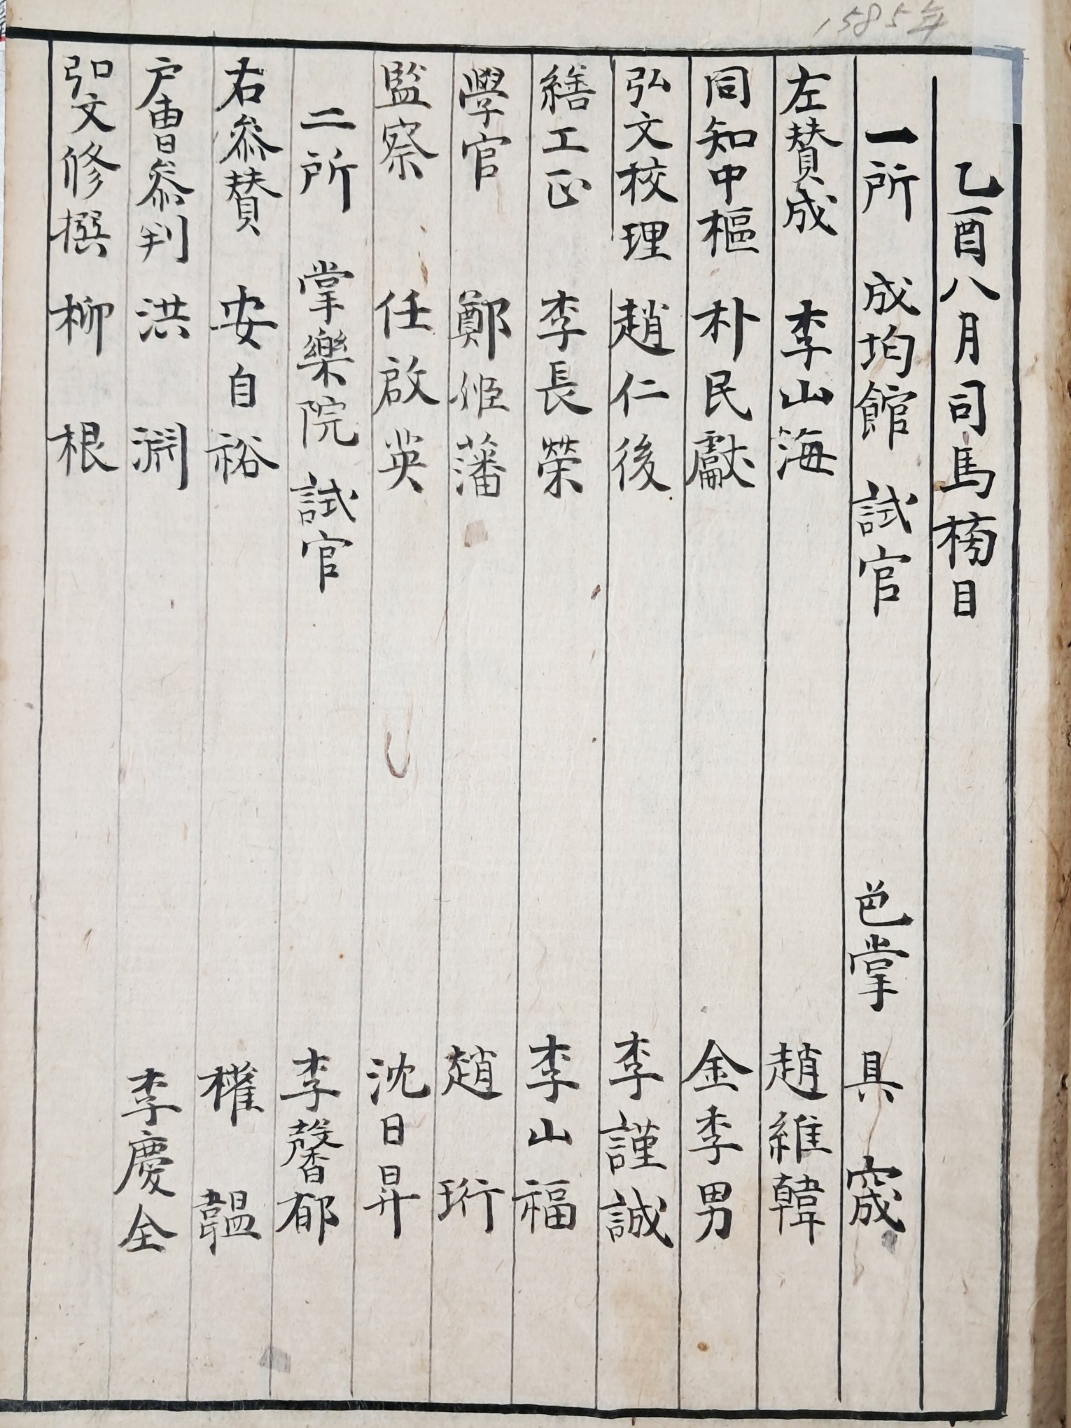 1585年
乙酉八月司馬榜目
一所 成均館 試官 色掌 具宬
左賛成 李山海 趙維韓
同知中樞 朴民獻 金季男
弘文校理 趙仁後 李謹誠
繕工正 李長榮 李山福
學官 鄭姬藩 趙珩
監察 任啟英 沈日昇
二所 掌樂院 試官 李馨郁
右叅賛 安自裕 權韞
户曹叅判 洪淵 李慶全
弘文修撰 柳根